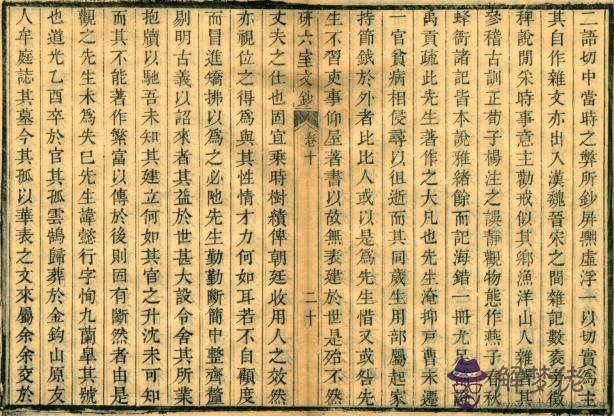 二語切中當時之弊所鈔屏黜虛浮一以切實為主
其自作雜文亦出入漢魏晉宋之間雜記數袠旁徵
稗說閒采時事意主勸戒似其鄉漁洋山人雜著其
參稽古訓正荀子楊注之誤靜觀物態作燕子春秋
蜂衙諸記皆本說雅緒餘而記海錯一冊尤足
禹貢疏此先生著作之大凡也先生淹抑戸曹未遷
一官貧病相侵尋以徂逝而其同歲生用部屬起家
持節鉞於外者比比人或以是為先生惜又或咎先
生不習吏事仰屋著書以故無表建於世是殆不然
研六室文鈔 卷十 二十
丈夫之仕也固宜乘時樹績俾朝廷收用人之效然
亦視位之得為與其性情才力何如耳若不自顧度
而冒進矯拂以為之必阤先生勤勤斷簡中整齊釐
剔明古義以詔來者其益於世甚大設令舍其所業
抱牘以馳吾未知其建立何如其官之升沈未可知
而其不能著作繁富以傳於後則固有斷然者由是
觀之先生未為失巳先生諱懿行字恂九蘭皋其號
也道光乙酉卒於官其孤雲鵠歸葬於金鉤山原友
人牟庭誌其墓今其孤以華表之文來屬余余交於